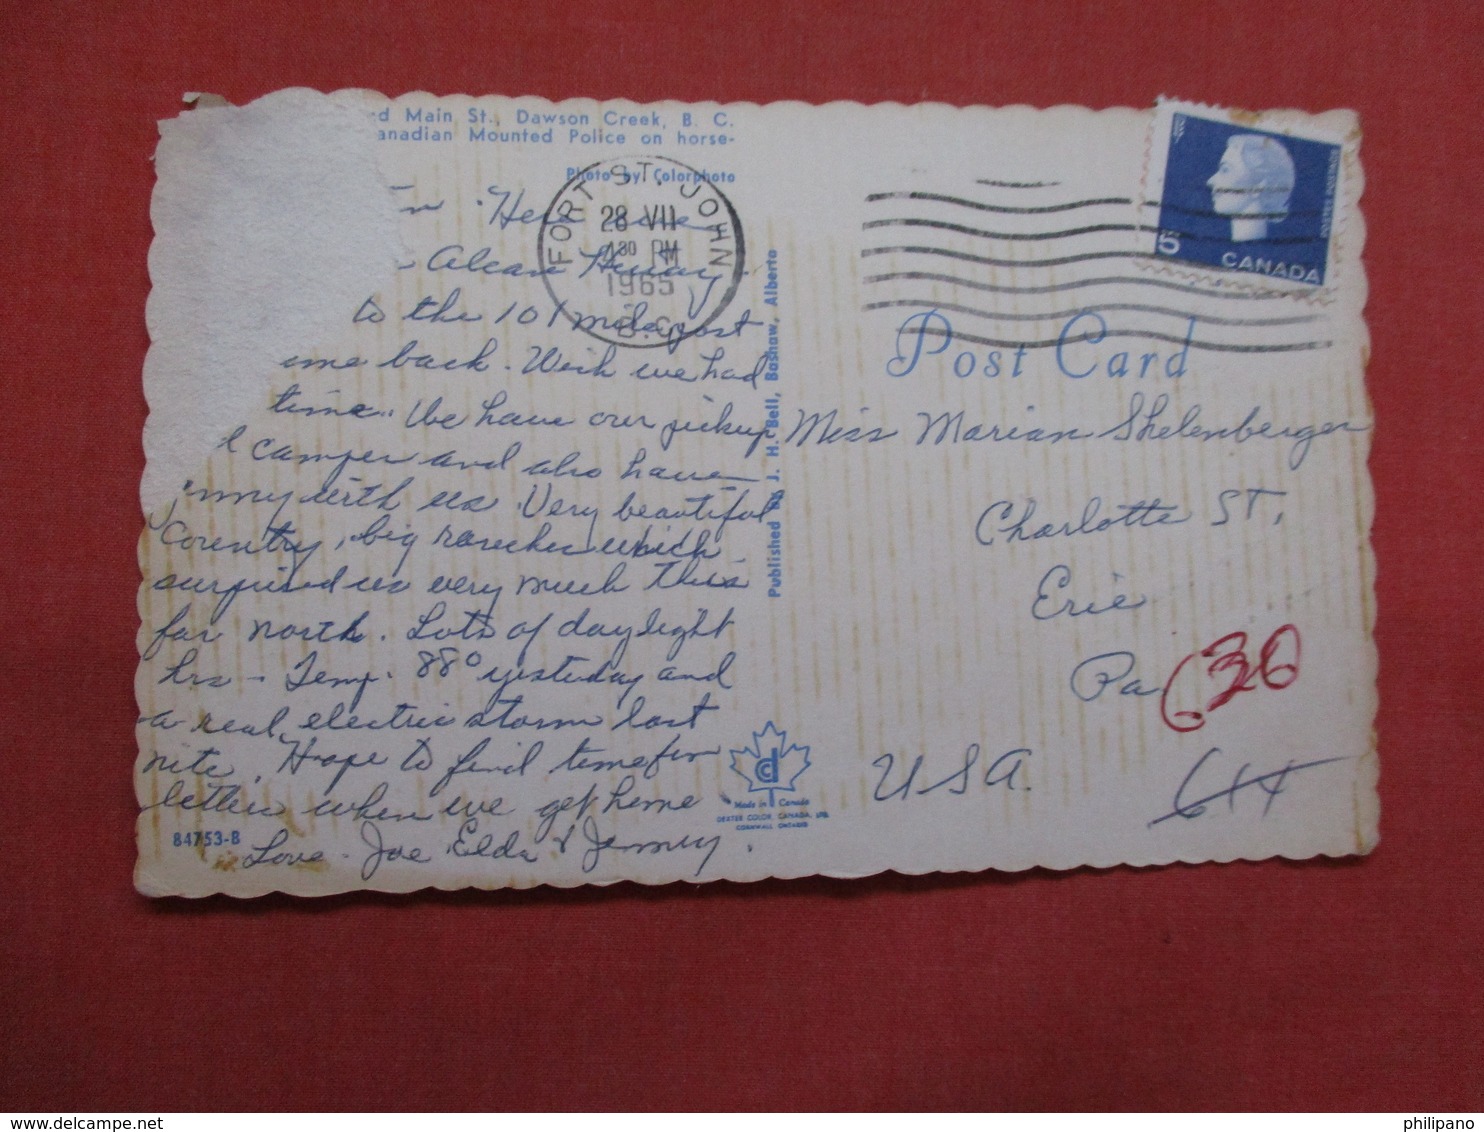 d Main St., Dawson Creek, B. C.
anadian Mounted Police on horse-
Photo by Colorphoto
FORT ST. JOHN
28 VII
430 PM
1965
B.C.
Here we
Alcan Hiway.
to the 101 mile post
ome back. Wish we had
time. We have our pickup
& camper and also have
Jimmy with us. Very beautiful
Country, big ranches which
surprised us very much this
far north. Lots of daylight
hrs - Temp. 88° yesterday and
a real electric storm last
nite. Hope to find time for
letter when we get home
Love. Joe, Elda & Jimmy.
84753-B
Published by J. H. Bell, Bashaw, Alberta
Made in Canada
DEXTER COLOR, CANADA, LTD.
CORNWALL ONTARIO
5
CANADA
POSTES POSTAGE
Post Card
Miss Marian Shelenberger
Charlotte ST.
Erie
Pa
630
644
USA.
philipano
delcampe.net